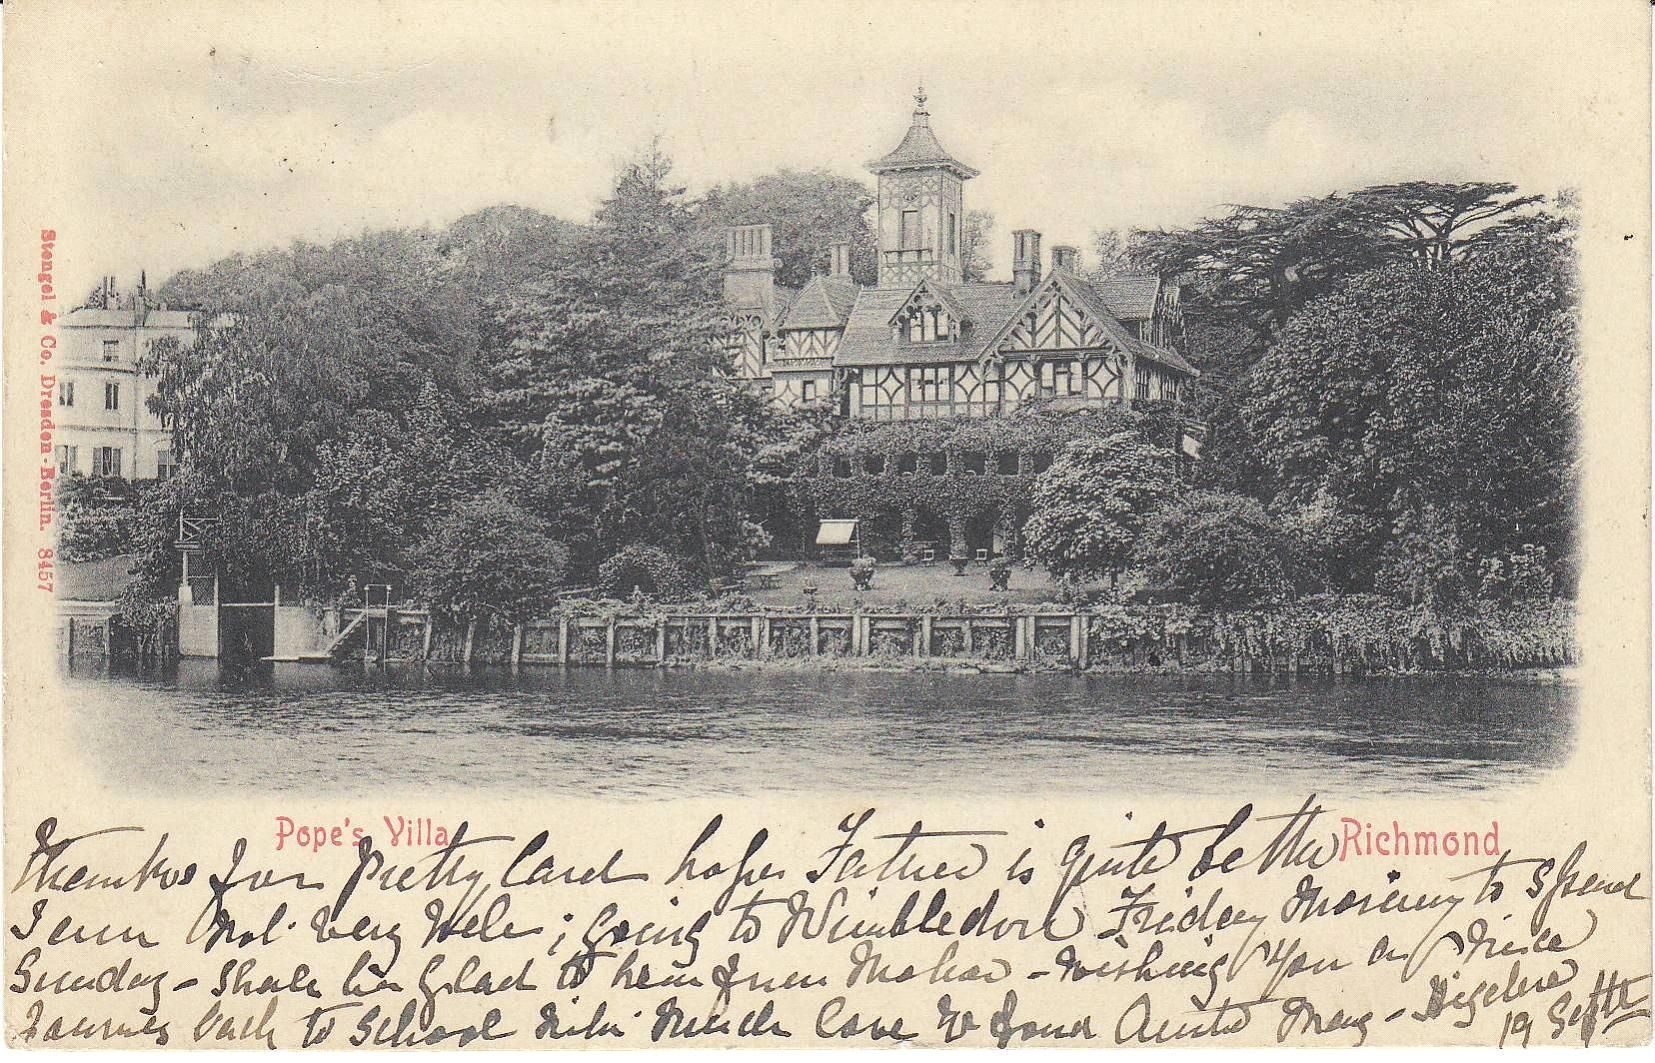 Stengel & Co, Dresden-Berlin. 8457
Pope's Villa
Richmond
Thanks for pretty Card hope Father is quite better
I am not very well ; going to Wimbledon Friday Morning to Spend
Sunday – Shall be Glad to hear from – wishing you a nice
Journey back to School with much love yr fond Auntie May –
19 Septr